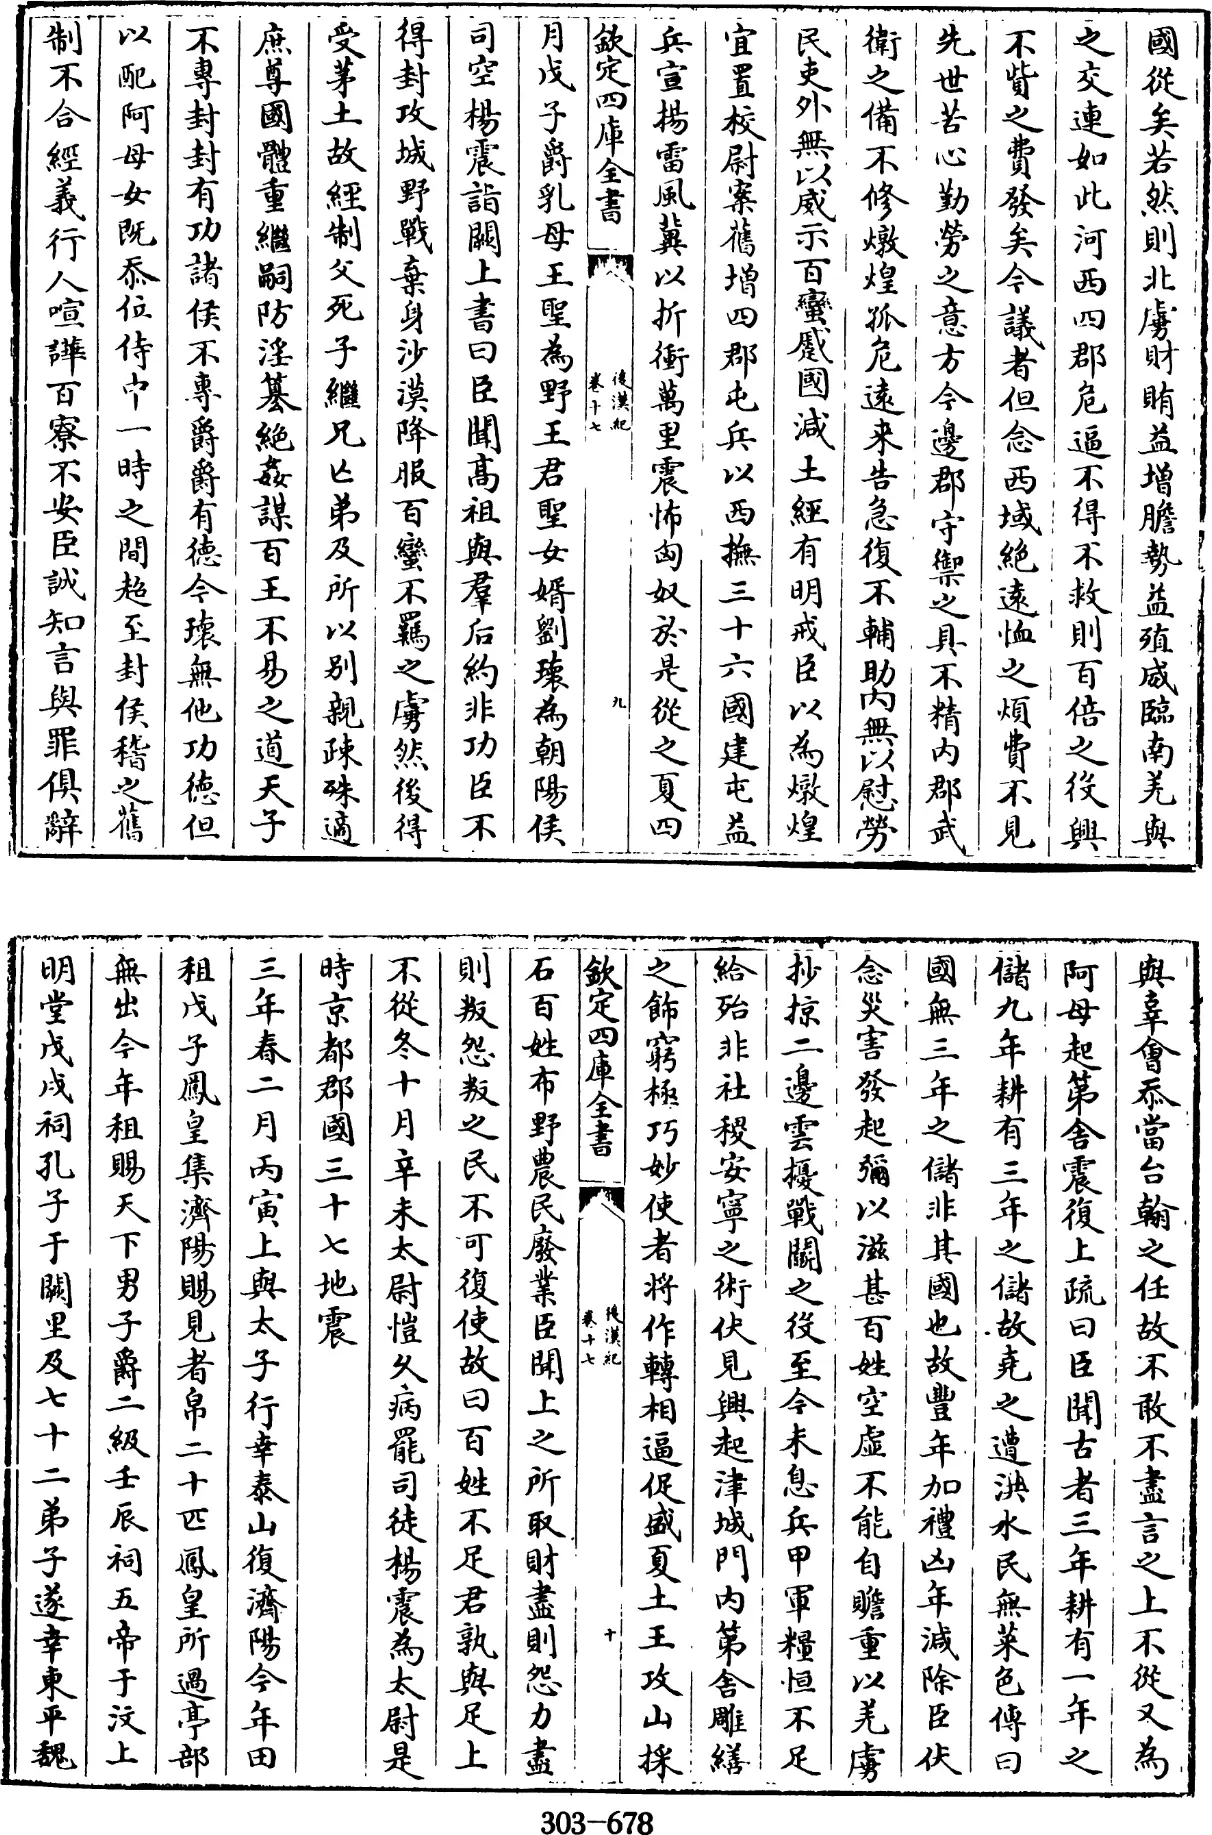 國從矣若然則北虜財賄益增膽勢益殖威臨南羌與
之交連如此河西四郡危逼不得不救則百倍之役興
不貲之費發矣今議者但念西域絶遠恤之煩費不見
先世苦心勤勞之意方今邊郡守禦之具不精内郡武
衛之備不修燉煌孤危遠來告急復不輔助内無以慰勞
民吏外無以威示百蠻蹙國減土經有明戒臣以為燉煌
宜置校尉案舊增四郡屯兵以西撫三十六國建屯益
兵宣揚雷風冀以折衝萬里震怖匈奴於是從之夏四
欽定四庫全書
後漢紀
卷十七
九
月戊子爵乳母王聖為野王君聖女婿劉瓌為朝陽侯
司空楊震詣闕上書曰臣聞髙祖與羣后約非功臣不
得封攻城野戰棄身沙漠降服百蠻不羈之虜然後得
受茅土故經制父死子繼兄亡弟及所以別親疎殊適
庶尊國體重繼嗣防淫簒絶姦謀百王不易之道天子
不專封封有功諸侯不專爵爵有德今瓌無他功德但
以配阿母女既忝位侍中一時之間超至封侯稽之舊
制不合經義行人喧譁百寮不安臣誠知言與罪俱辭
與辜會忝當台翰之任故不敢不盡言之上不從又為
阿母起第舍震復上疏曰臣聞古者三年耕有一年之
儲九年耕有三年之儲故堯之遭洪水民無菜色傳曰
國無三年之儲非其國也故豐年加禮凶年減除臣伏
念災害發起彌以滋甚百姓空虛不能自贍重以羌虜
抄掠二邊雲擾戰鬬之役至今未息兵甲軍糧恒不足
給殆非社稷安寧之術伏見興起津城門内第舍雕繕
之飾窮極巧妙使者將作轉相逼促盛夏土王攻山採
欽定四庫全書
後漢紀
卷十七
十
石百姓布野農民廢業臣聞上之所取財盡則怨力盡
則叛怨叛之民不可復使故曰百姓不足君孰與足上
不從冬十月辛未太尉愷久病罷司徒楊震為太尉是
時京都郡國三十七地震
三年春二月丙寅上與太子行幸泰山復濟陽今年田
租戊子鳳皇集濟陽賜見者帛二十匹鳳皇所過亭部
無出今年租賜天下男子爵二級壬辰祠五帝于汶上
明堂戊戌祠孔子于闕里及七十二弟子遂幸東平魏
303-678